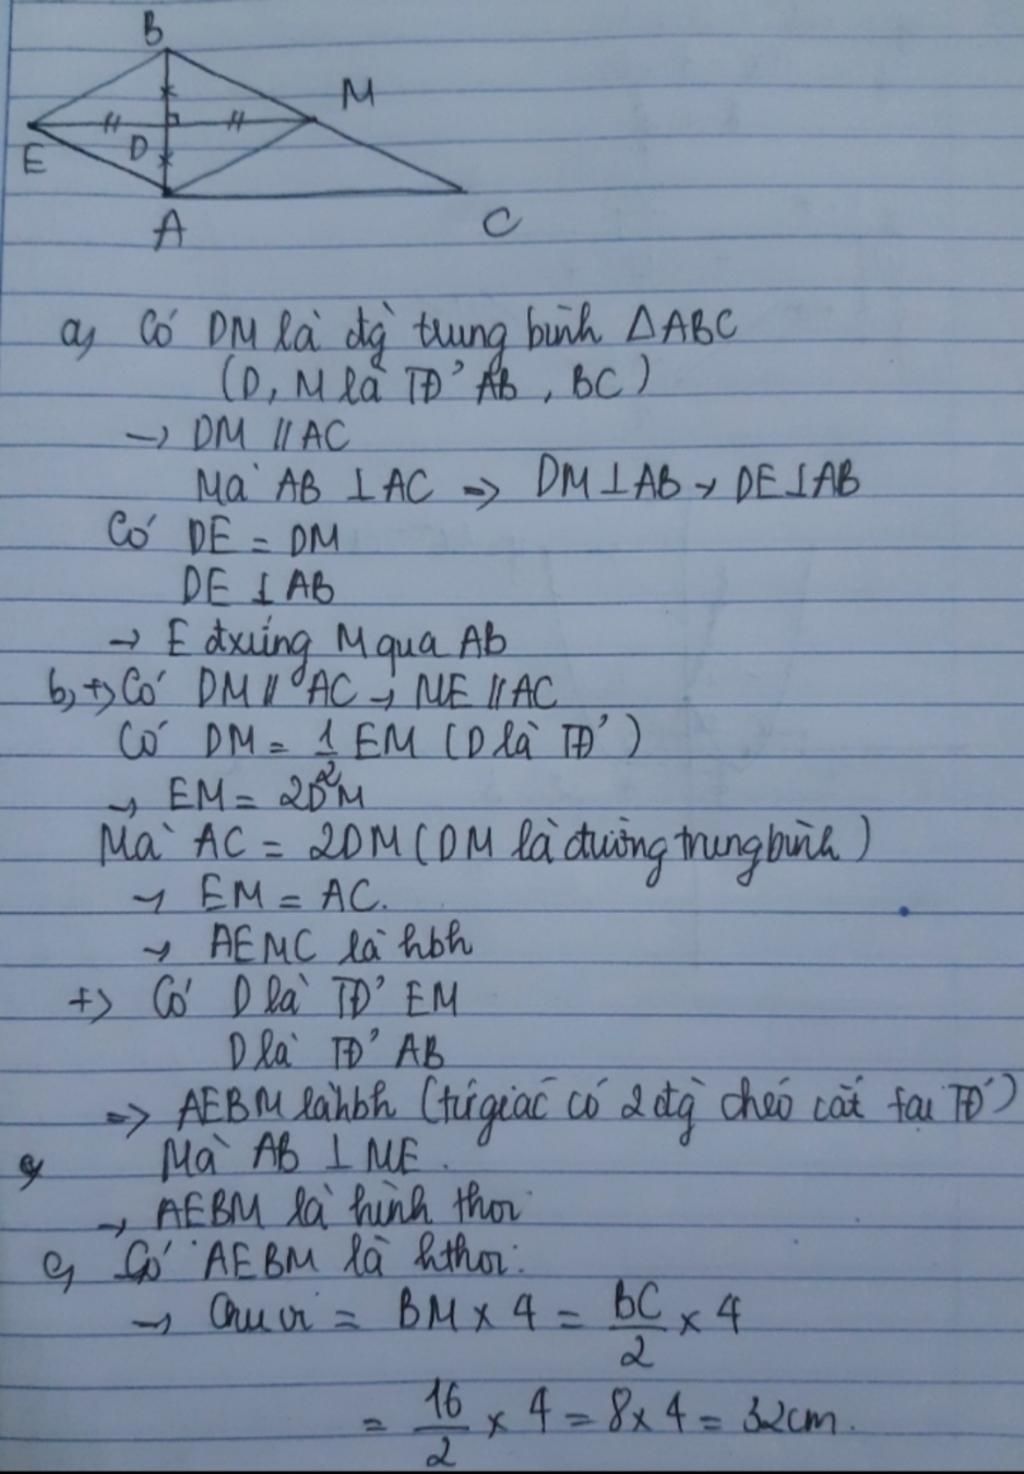 B
M
E
D
A
C
a, Có DM là đg̀ trung bình △ABC
(D, M là TĐ' AB, BC)
→ DM // AC
Mà AB ⊥ AC => DM ⊥ AB → DE ⊥ AB
Có DE = DM
DE ⊥ AB
→ E đxứng M qua AB
b, +) Có DM // AC → ME // AC
Có DM = 1/2 EM (D là TĐ')
→ EM = 2DM
Mà AC = 2DM (DM là đường trung bình)
→ EM = AC.
→ AEMC là hbh
+) Có D là TĐ' EM
D là TĐ' AB
=> AEBM là hbh (tứ giác có 2 đg̀ chéo cắt tại TĐ')
Mà AB ⊥ ME.
→ AEBM là hình thoi
c, Có AEBM là hthoi.
→ Chu vi = BM x 4 = BC/2 x 4
= 16/2 x 4 = 8 x 4 = 32cm.